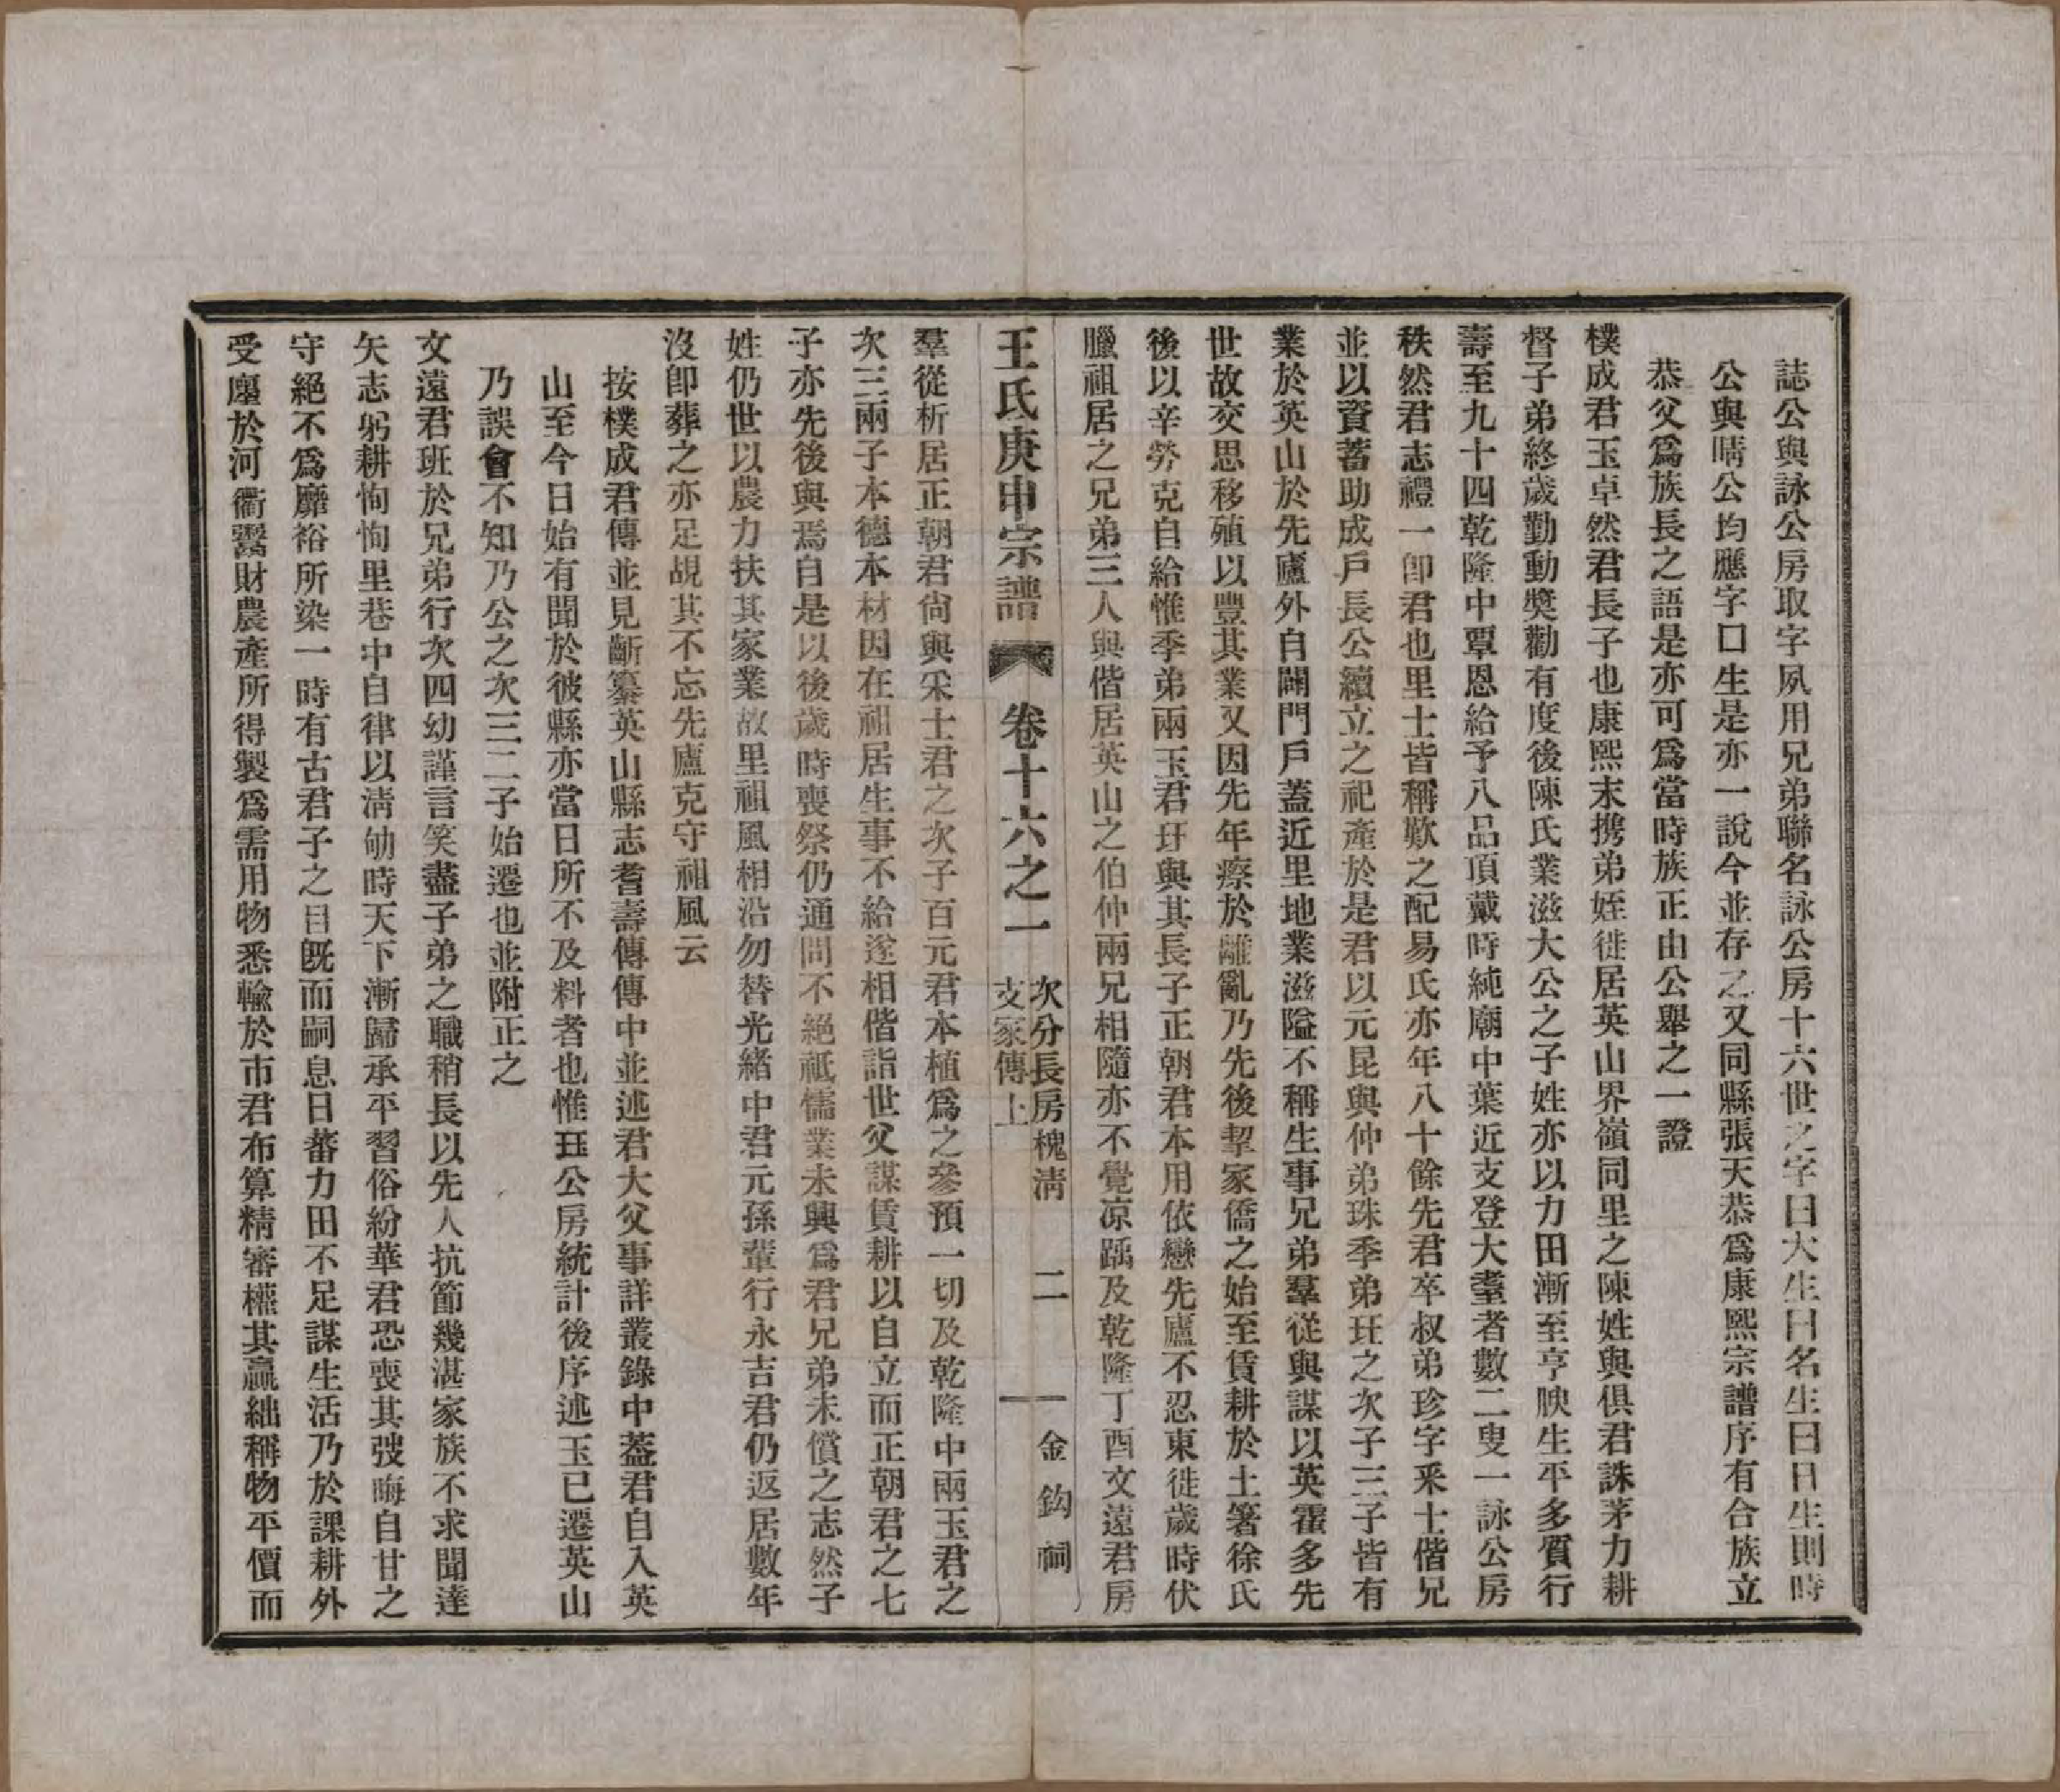 誌公與詠公房取字夙用兄弟聯名詠公房十六世之字曰大生曰名生曰日生則時
公與晴公均應字口生是亦一說今並存之又同縣張天恭爲康熙宗譜序有合族立
恭父爲族長之語是亦可爲當時族正由公舉之一證
樸成君玉卓然君長子也康熙末攜弟姪徙居英山界嶺同里之陳姓與俱君誅茅力耕
督子弟終歲勤動獎勸有度後陳氏業滋大公之子姓亦以力田漸至亨腴生平多質行
壽至九十四乾隆中覃恩給予八品頂戴時純廟中葉近支登大耋者數二叟一詠公房
秩然君志禮一卽君也里士皆稱歎之配易氏亦年八十餘先君卒叔弟珍字釆士偕兄
並以資蓄助成戶長公續立之祀產於是君以元昆與仲弟珠季弟玨之次子三子皆有
業於英山於先廬外自闢門戶蓋近里地業滋隘不稱生事兄弟羣從與謀以英霍多先
世故交思移殖以豐其業又因先年瘵於離亂乃先後挈家僑之始至賃耕於土箸徐氏
後以辛勞克自給惟季弟兩玉君玨與其長子正朝君本用依戀先廬不忍東徙歲時伏
臘祖居之兄弟三人與偕居英山之伯仲兩兄相隨亦不覺凉踽及乾隆丁酉文遠君房
王氏庚申宗譜 卷十六之一 次分長房槐淸支家傳上 二 金鈎祠
羣從析居正朝君尙與釆士君之次子百元君本植爲之參預一切及乾隆中兩玉君之
次三兩子本德本材因在祖居生事不給遂相偕詣世父謀賃耕以自立而正朝君之七
子亦先後與焉自是以後歲時喪祭仍通問不絕祗懦業未興爲君兄弟未償之志然子
姓仍世以農力扶其家業故里祖風相沿勿替光緒中君元孫輩行永吉君仍返居數年
沒卽葬之亦足覘其不忘先廬克守祖風云
按樸成君傳並見斷纂英山縣志耆壽傳傳中並述君大父事詳叢錄中葢君自入英
山至今日始有聞於彼縣亦當日所不及料者也惟玨公房統計後序述玉已遷英山
乃誤會不知乃公之次三二子始遷也並附正之
文遠君班於兄弟行次四幼謹言笑盡子弟之職稍長以先人抗節幾湛家族不求聞達
矢志躬耕恂恂里巷中自律以淸劬時天下漸歸承平習俗紛華君恐喪其弢晦自甘之
守絕不爲靡裕所染一時有古君子之目旣而嗣息日蕃力田不足謀生活乃於課耕外
受廛於河衢鬻財農產所得製爲需用物悉輸於市君布算精審櫃其贏絀稱物平價而